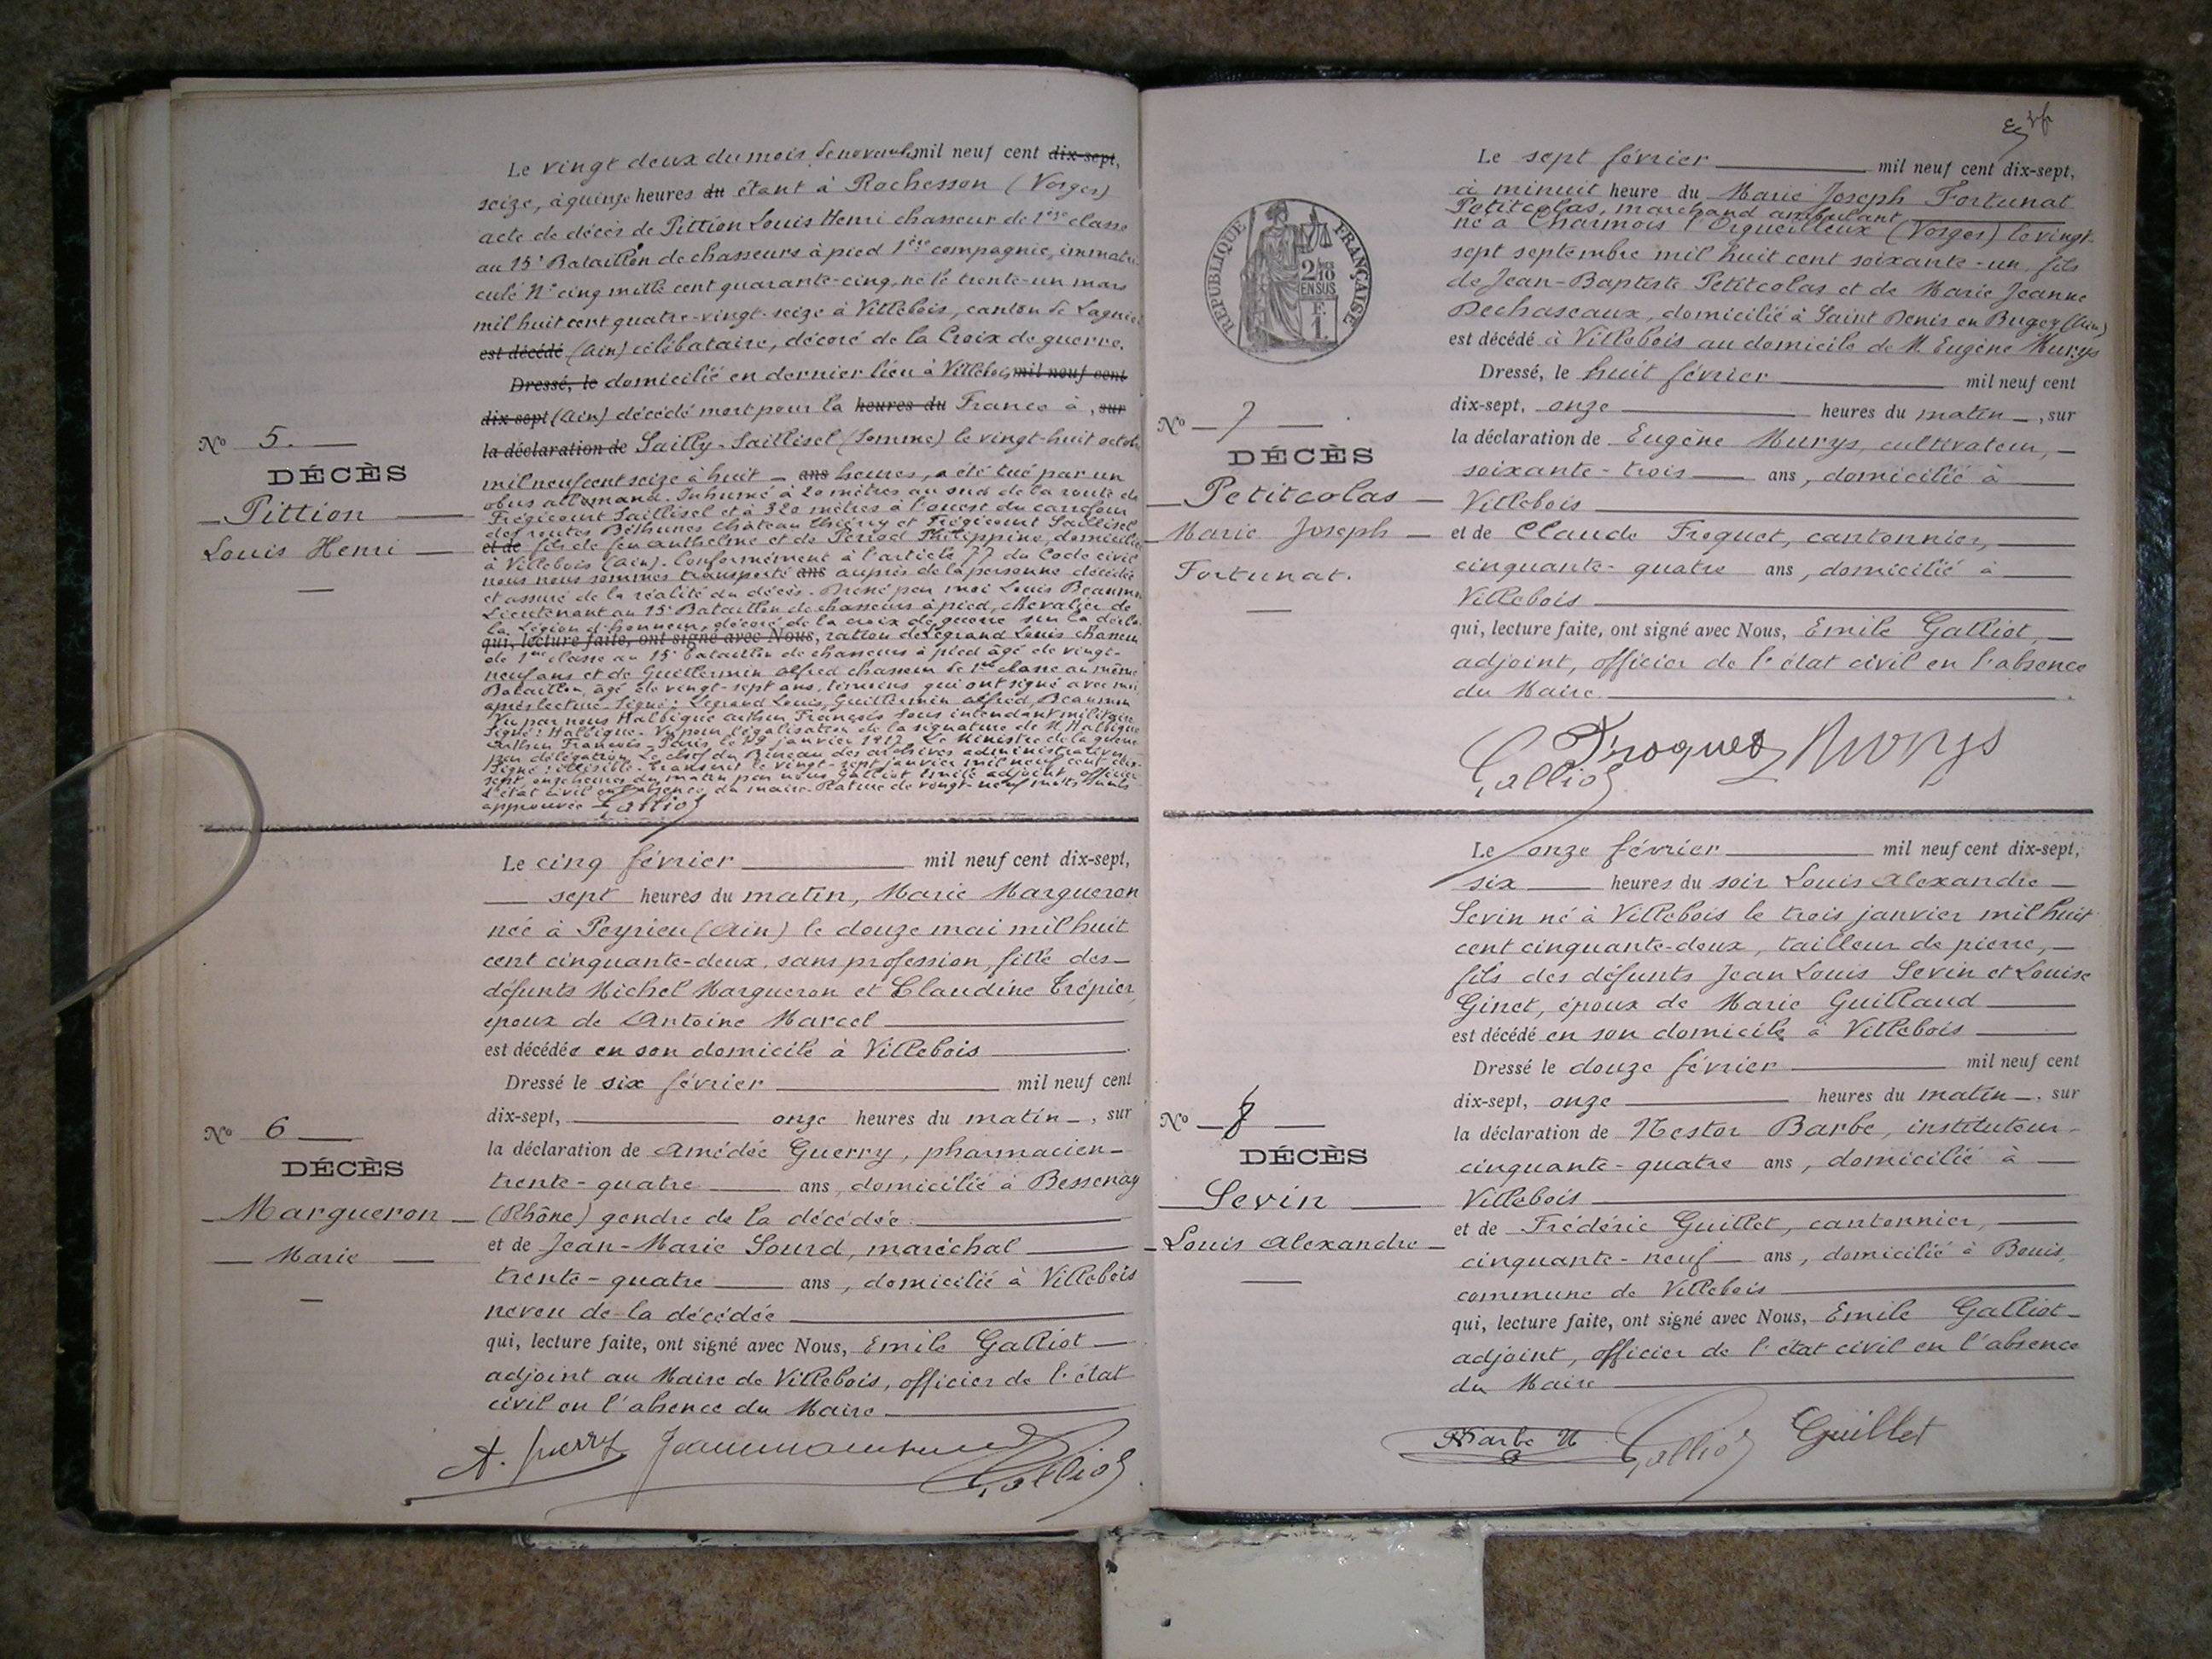 Le vingt deux du mois de novembre mil neuf cent dix-sept,
seize, à quinze heures du étant à Rochesson (Vosges)
acte de décès de Pittion Louis Henri chasseur de 1ère classe
au 15e Bataillon de chasseurs à pied 1ère compagnie, immatri
culé No cinq mille cent quarante-cinq, né le trente-un mars
mil huit cent quatre-vingt-seize à Villebois, canton de Lagnieu
est décédé (Ain) célibataire, décoré de la Croix de guerre.
Dressé, le domicilié en dernier lieu à Villebois mil neuf cent
dix-sept (Ain) décédé mort pour la heures du France à , sur
la déclaration de Sailly-Saillisel (Somme) le vingt-huit octobre
mil neuf cent seize à huit ans heures, a été tué par un
obus allemand. Inhumé à 20 mètres au sud de la route de
Frégicourt Saillisel et à 320 mètres à l'ouest du carrefour
des routes Béthunes Château Thiérry et Frégicourt Saillisel
et de fils de feu Anthelme et de Périod Philippine, domicilié
à Villebois (Ain). Conformément à l'article 77 du Code civil
nous nous sommes transporté ans auprès de la personne décédée
et assuré de la réalité du décès. Dressé par moi Louis Beaumon
Lieutenant au 15e Bataillon de chasseurs à pied, chevalier de
la Légion d'honneur, décoré de la croix de guerre sur la décla
qui, lecture faite, ont signé avec Nous, ration de Legrand Louis chasseur
de 1ère classe au 15e bataillon de chasseurs à pied âgé de vingt-
neuf ans et de Guillermin Alfred chasseur de 1ère classe au même
Bataillon, âgé de vingt-sept ans, témoins qui ont signé avec moi
après lecture. Signé: Legrand Louis, Guillermin Alfred, Beaumon
Vu par nous Halbique François Sous intendant militaire
Signé: Halbique. Vu pour légalisation de la signature de M. Halbique
François. Paris, le 19 janvier 1917. Le Ministre de la guerre
par délégation Le chef du Bureau des archives administratives
Signé: illisible. Transcrit le vingt-sept janvier mil neuf cent dix-
sept, onze heures du matin par nous Galliot Emile adjoint officier
d'état civil en l'absence du maire. Rature de vingt-neuf mots nuls
approuvée Galliot
No 5.
DÉCÈS
Pittion
Louis Henri
Le cinq février mil neuf cent dix-sept,
sept heures du matin, Marie Margueron
née à Peyrieu (Ain) le douze mai mil huit
cent cinquante-deux, sans profession, fille des
défunts Michel Margueron et Claudine Trépier,
époux de Antoine Marcel
est décédée en son domicile à Villebois
Dressé le six février mil neuf cent
dix-sept, onze heures du matin, sur
la déclaration de Amédée Guerry, pharmacien
trente-quatre ans, domicilié à Bessenay
(Rhône) gendre de la décédée
et de Jean-Marie Sourd, maréchal
trente-quatre ans, domicilié à Villebois
neveu de la décédée
qui, lecture faite, ont signé avec Nous, Emile Galliot
adjoint au Maire de Villebois, officier de l'état
civil en l'absence du Maire
A. Guerry Galliot
No 6
DÉCÈS
Margueron
Marie
RÉPUBLIQUE FRANÇAISE
2/10
EN SUS
F.
1.
Le sept février mil neuf cent dix-sept,
à minuit heure du Marie Joseph Fortunat
Petitcolas, marchand ambulant
né à Charmois l'Orgueilleux (Vosges) le vingt-
sept septembre mil huit cent soixante-un, fils
de Jean-Baptiste Petitcolas et de Marie Jeanne
Dechaseaux, domicilié à Saint Denis en Bugey (Ain)
est décédé à Villebois au domicile de M. Eugène Murys
Dressé, le huit février mil neuf cent
dix-sept, onze heures du matin, sur
la déclaration de Eugène Murys, cultivateur,
soixante-trois ans, domicilié à
Villebois
et de Claude Froquet, cantonnier,
cinquante-quatre ans, domicilié à
Villebois
qui, lecture faite, ont signé avec Nous, Emile Galliot,
adjoint, officier de l'état civil en l'absence
du Maire.
Froquet Murys
Galliot
No 7
DÉCÈS
Petitcolas
Marie Joseph
Fortunat.
Le onze février mil neuf cent dix-sept,
six heures du soir Louis Alexandre
Sevin né à Villebois le trois janvier mil huit
cent cinquante-deux, tailleur de pierre,
fils des défunts Jean Louis Sevin et Louise
Ginet, époux de Marie Guillaud
est décédé en son domicile à Villebois
Dressé le douze février mil neuf cent
dix-sept, onze heures du matin, sur
la déclaration de Nestor Barbe, instituteur
cinquante-quatre ans, domicilié à
Villebois
et de Frédéric Guillet, cantonnier,
cinquante-neuf ans, domicilié à Bouis,
commune de Villebois
qui, lecture faite, ont signé avec Nous, Emile Galliot
adjoint, officier de l'état civil en l'absence
du Maire
Barbe N Galliot Guillet
No 8
DÉCÈS
Sevin
Louis Alexandre